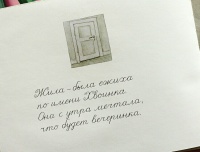 Жила-была ежиха
по имени Хвоинка.
Она с утра мечтала,
что будет вечеринка.